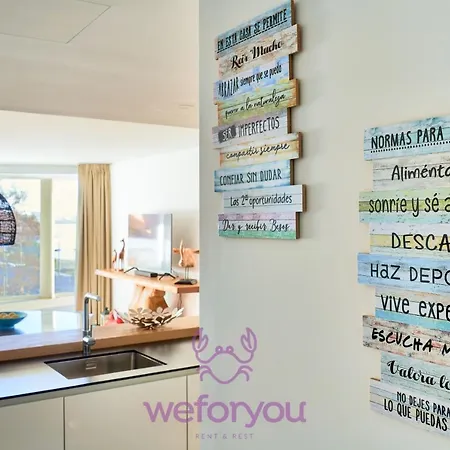 EN ESTA CASA SE PERMITE
Reír Mucho
ABRAZAR siempre que se pueda
a la naturaleza
SER IMPERFECTOS
compartir siempre
CONFIAR SIN DUDAR
Las 2ª oportunidades
Dar y recibir Besos
NORMAS PARA
Aliménta
sonríe y sé a
DESCA
HAZ DEPO
VIVE EXPE
ESCUCHA M
Valora lo
NO DEJES PARA
LO QUE PUEDAS
weforyou
RENT & REST